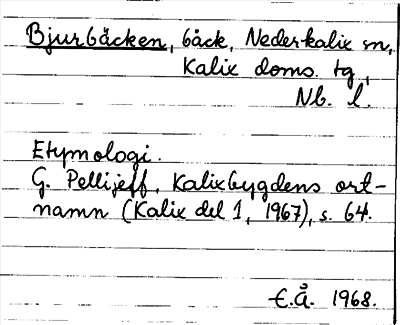 Bjurbäcken, bäck, Nederkalix sn,
Kalix doms. tg,
Nb. l.
Etymologi.
G. Pellijeff, Kalixbygdens ort-
namn (Kalix del 1, 1967), s. 64.
E.Å. 1968.